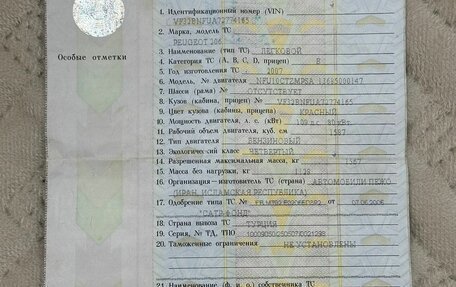 Особые отметки
1. Идентификационный номер (VIN)
VF32BNFUA72774165
2. Марка, модель ТС
PEUGEOT 206
3. Наименование (тип ТС) ЛЕГКОВОЙ
4. Категория ТС (A, B, C, D, прицеп) B
5. Год изготовления ТС 2007
6. Модель, № двигателя NFU10CTZMPSA 11685000147
7. Шасси (рама) № ОТСУТСТВУЕТ
8. Кузов (кабина, прицеп) № VF32BNFUA72774165
9. Цвет кузова (кабины, прицепа) КРАСНЫЙ
10. Мощность двигателя, л. с. (кВт) 109 л.с. 80кВт.
11. Рабочий объем двигателя, куб. см 1587
12. Тип двигателя БЕНЗИНОВЫЙ
13. Экологический класс ЧЕТВЕРТЫЙ
14. Разрешенная максимальная масса, кг 1567
15. Масса без нагрузки, кг 1128
16. Организация—изготовитель ТС (страна) АВТОМОБИЛИ ПЕЖО
(ИРАН, ИСЛАМСКАЯ РЕСПУБЛИКА)
17. Одобрение типа ТС № от 07.06.2006
"САТРФОНЕ"
18. Страна вывоза ТС ТУРЦИЯ
19. Серия, № ТД, ТПО
20. Таможенные ограничения НЕ УСТАНОВЛЕНЫ
21. Наименование, (ф. и. о.) собственника ТС